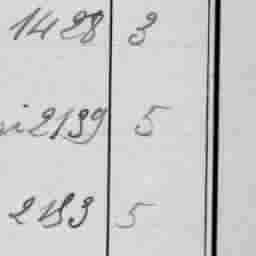 1428 3
ni 2139 5
2153 5